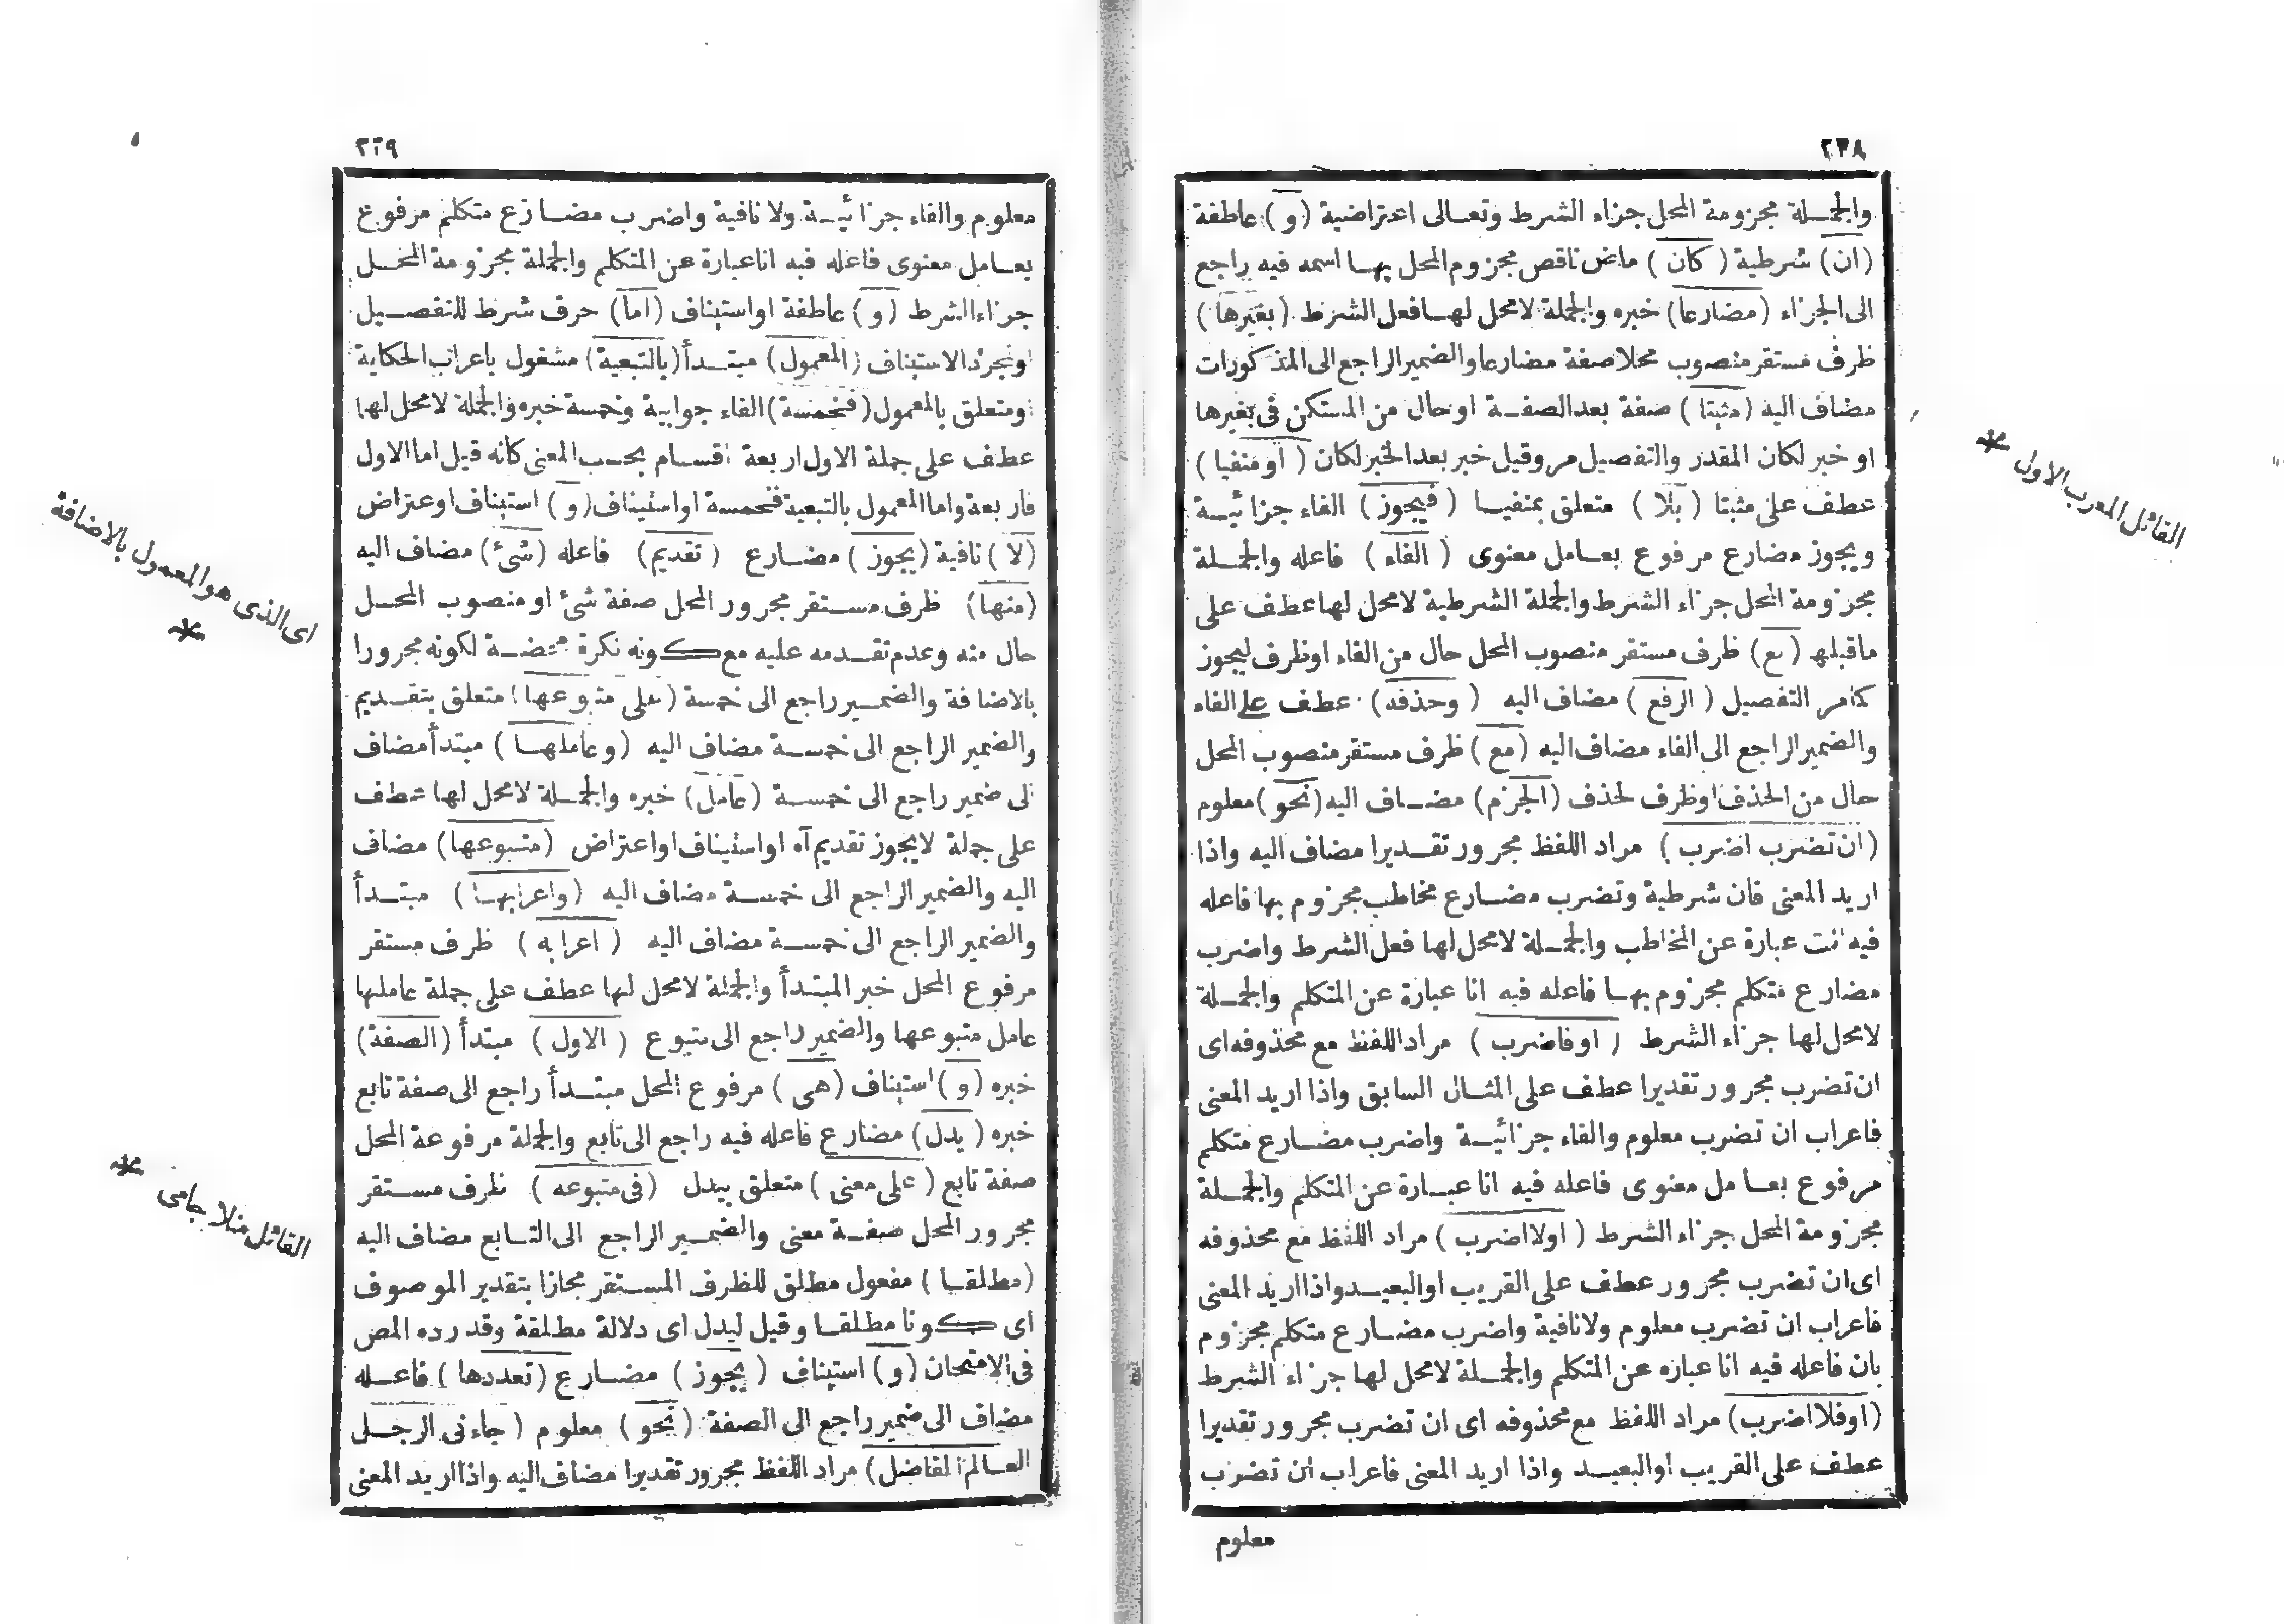 ٢٣٨
والجملة مجزومة المحل جزاء الشرط وتعالى اعتراضية (و) عاطفة
(ان) شرطية (كان) ماض ناقص مجزوم المحل بها اسمه فيه راجع
الى الجزاء (مضارعا) خبره والجملة لامحل لها فعل الشرط (بغيرها)
ظرف مستقر منصوب محلا صفة مضارعا والضمير الراجع الى المذكورات
مضاف اليه (مثبتا) صفة بعد الصفة او حال من المستكن فى بغيرها
او خبر لكان المقدر والتفصيل مر وقيل خبر بعد الخبر لكان (اومنفيا)
عطف على مثبتا (بلا) متعلق بمنفيا (فيجوز) الفاء جزائية
ويجوز مضارع مرفوع بعامل معنوى (الفاء) فاعله والجملة
مجزومة المحل جزاء الشرط والجملة الشرطية لامحل لها عطف على
ماقبلها (مع) ظرف مستقر منصوب المحل حال من الفاء او ظرف ليجوز
كما مر التفصيل (الرفع) مضاف اليه (وحذفه) عطف على الفاء
والضمير الراجع الى الفاء مضاف اليه (مع) ظرف مستقر منصوب المحل
حال من الحذف او ظرف لحذف (الجزم) مضاف اليه (نحو) معلوم
(ان تضرب اضرب) مراد اللفظ مجرور تقديرا مضاف اليه واذا
اريد المعنى فان شرطية وتضرب مضارع مخاطب مجزوم بها فاعله
فيه انت عبارة عن المخاطب والجملة لامحل لها فعل الشرط واضرب
مضارع متكلم مجزوم بها فاعله فيه انا عبارة عن المتكلم والجملة
لامحل لها جزاء الشرط (اوفاضرب) مراد اللفظ مع محذوفه اى
ان تضرب مجرور تقديرا عطف على المثال السابق واذا اريد المعنى
فاعراب ان تضرب معلوم والفاء جزائية واضرب مضارع متكلم
مرفوع بعامل معنوى فاعله فيه انا عبارة عن المتكلم والجملة
مجزومة المحل جزاء الشرط (اولااضرب) مراد اللفظ مع محذوفه
اى ان تضرب مجرور عطف على القريب او البعيد واذا اريد المعنى
فاعراب ان تضرب معلوم ولانافية واضرب مضارع متكلم مجزوم
بان فاعله فيه انا عباره عن المتكلم والجملة لامحل لها جزاء الشرط
(اوفلااضرب) مراد اللفظ مع محذوفه اى ان تضرب مجرور تقديرا
عطف على القريب او البعيد واذا اريد المعنى فاعراب ان تضرب
معلوم
القائل المعرب الاول *
٢٣٩
معلوم والفاء جزائية ولا نافية واضرب مضارع متكلم مرفوع
بعامل معنوى فاعله فيه انا عبارة عن المتكلم والجملة مجزومة المحل
جزاء الشرط (و) عاطفة او استيناف (اما) حرف شرط للتفصيل
او مجرد الاستيناف (المعمول) مبتدأ (بالتبعية) مشغول باعراب الحكاية
او متعلق بالمعمول (فخمسة) الفاء جوابية وخمسة خبره والجملة لامحل لها
عطف على جملة الاول اربعة اقسام بحسب المعنى كانه قيل اما الاول
فاربعة واما المعمول بالتبعية فخمسة او استيناف (و) استيناف اوعتراض
(لا) نافية (يجوز) مضارع (تقديم) فاعله (شئ) مضاف اليه
(منها) ظرف مستقر مجرور المحل صفة شئ او منصوب المحل
حال منه وعدم تقدمه عليه مع كونه نكرة محضة لكونه مجرورا
بالاضافة والضمير راجع الى خمسة (على متبوعها) متعلق بتقديم
والضمير الراجع الى خمسة مضاف اليه (وعاملها) مبتدأ مضاف
الى ضمير راجع الى خمسة (عامل) خبره والجملة لامحل لها عطف
على جملة لايجوز تقديم آه او استيناف او اعتراض (متبوعها) مضاف
اليه والضمير الراجع الى خمسة مضاف اليه (واعرابها) مبتدأ
والضمير الراجع الى خمسة مضاف اليه (اعرابه) ظرف مستقر
مرفوع المحل خبر المبتدأ والجملة لامحل لها عطف على جملة عاملها
عامل متبوعها والضمير راجع الى متبوع (الاول) مبتدأ (الصفة)
خبره (و) استيناف (هى) مرفوع المحل مبتدأ راجع الى صفة تابع
خبره (يدل) مضارع فاعله فيه راجع الى تابع والجملة مرفوعة المحل
صفة تابع (على معنى) متعلق بيدل (فى متبوعه) ظرف مستقر
مجرور المحل صفة معنى والضمير الراجع الى التابع مضاف اليه
(مطلقا) مفعول مطلق للظرف المستقر مجازا بتقدير الموصوف
اى كونا مطلقا وقيل ليدل اى دلالة مطلقة وقد رده المص
فى الامتحان (و) استيناف (يجوز) مضارع (تعددها) فاعله
مضاف الى ضمير راجع الى الصفة (نحو) معلوم (جاءنى الرجل
العالم الفاضل) مراد اللفظ مجرور تقديرا مضاف اليه واذا اريد المعنى
اى الذى هو المعمول بالاضافة
*
القائل منلا جامى *